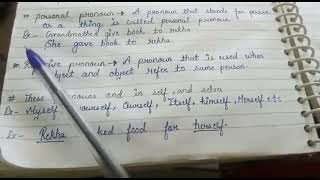 # personal pronoun → A pronoun that stands for person
or a thing is called personal pronoun.
Ex- Grandmother give book to rekha
She gave book to rekha
# ive pronoun → A pronoun that is used when
ject and object refer to same person.
# These nouns end in self and selves
Ex- Myself ourself, Ourself, Itself, himself, Herself etc
Ex- Rekha ked food for herself.